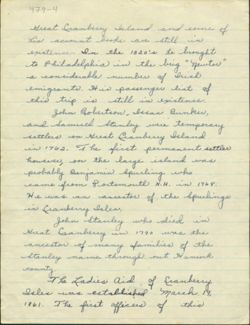 479-4
Great Cranberry Island and some of
his account books are still in
existence. In the 1820's he brought
to Philadelphia in the brig "Hunter"
a considerable number of Irish
emigrants. His passenger list of
this trip is still in existence.
John Robertson, Isaac Bunker,
and Samuel Stanley were temporary
settlers on Great Cranberry Island
in 1762. The first permanent settler
however, on the large island was
probably Benjamin Spurling who
came from Portsmouth N.H. in 1768.
He was an ancestor of the Spurlings
in Cranberry Isles.
John Stanley who died in
Great Cranberry in 1790 was the
ancestor of many families of the
Stanley name through out Hancock
county.
The Ladies Aid of Cranberry
Isles was established March 14,
The first officers of this